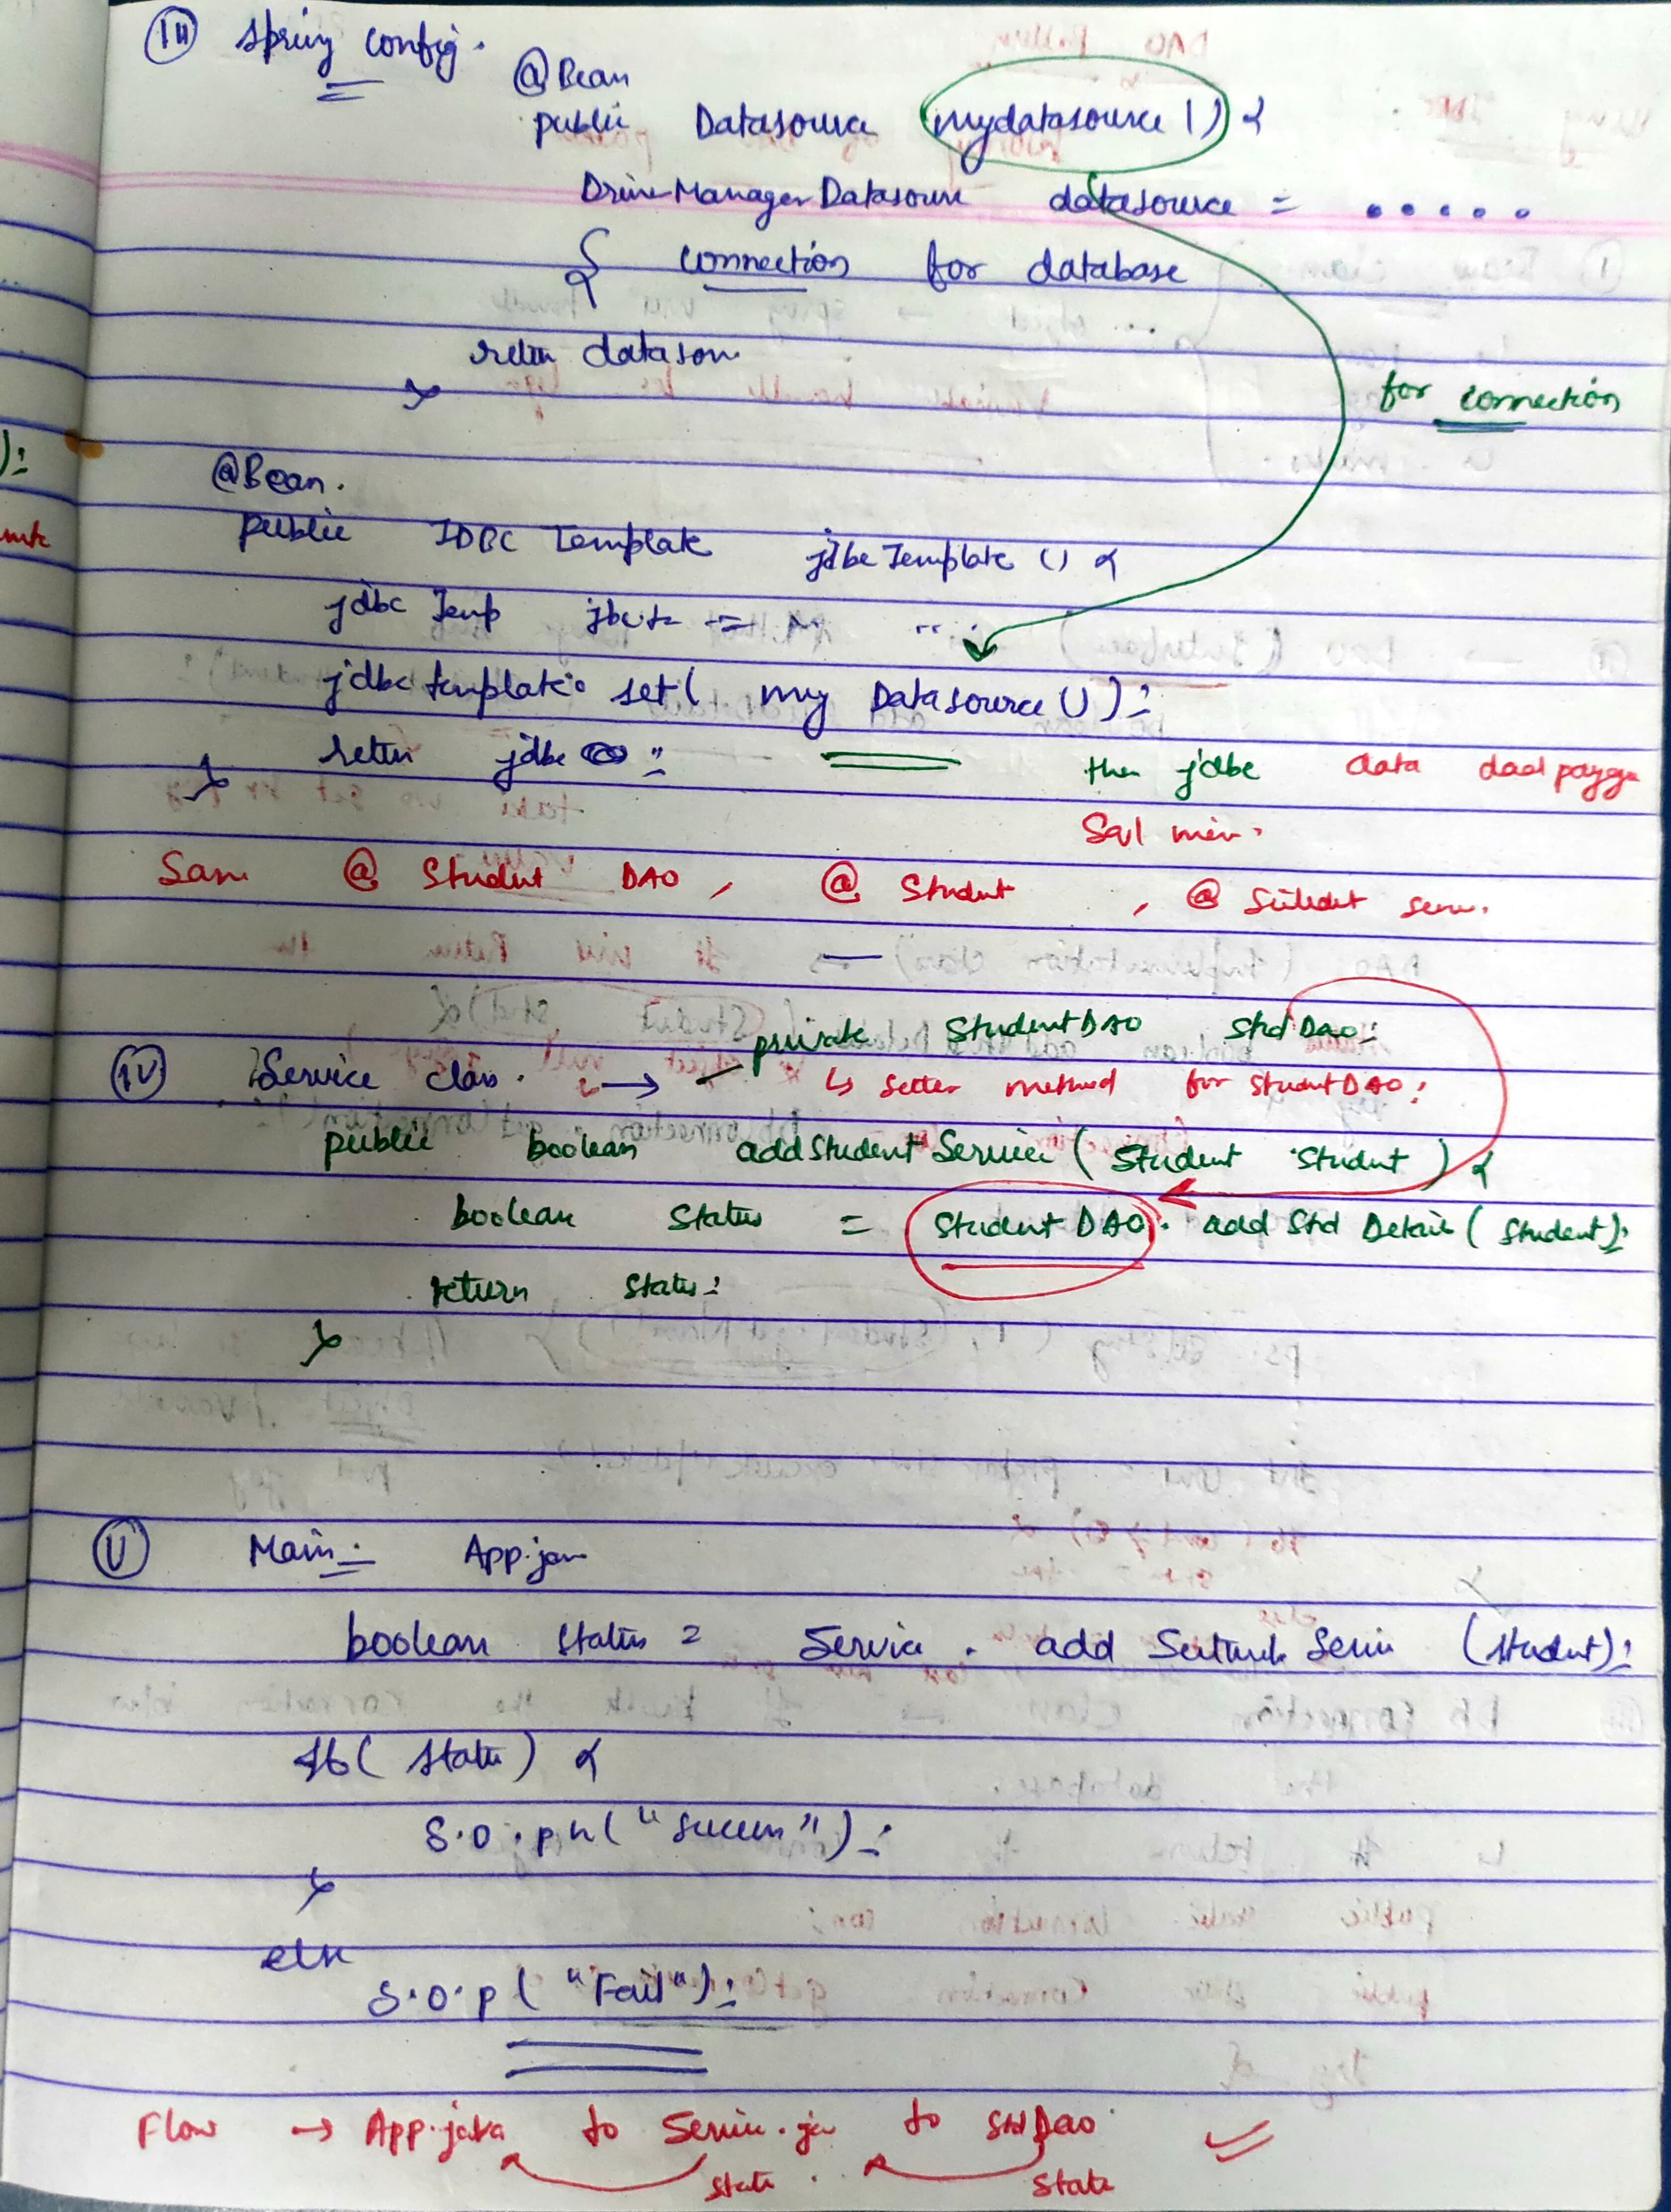 III Spring Config.
@Bean
public Datasource mydatasource () {
DriverManagerDatasource datasource = .....
{ connection for database
return datasour
}
for connection
@Bean.
public JDBC Template jdbcTemplate () {
jdbc Temp jbcte = ....
jdbc template. set( my Datasource () );
return jdbc ;
}
then jdbc data daal payga
Sql mein.
Same @ Student DAO , @ Student , @ Student serv.
private StudentDAO Std Dao;
IV Service class. →
↳ setter method for StudentDAO;
public boolean addStudent Service ( Student Student ) {
boolean Status = Student DAO. add Std Detail ( Student);
return Status;
}
V Main: App.jav
boolean status = Service . add Service (student);
If( Statu ) {
S.O.pn( "Success" );
}
else
S.O.P( "Fail");
Flow → App.java to Servic.ja to StdDao
state . State